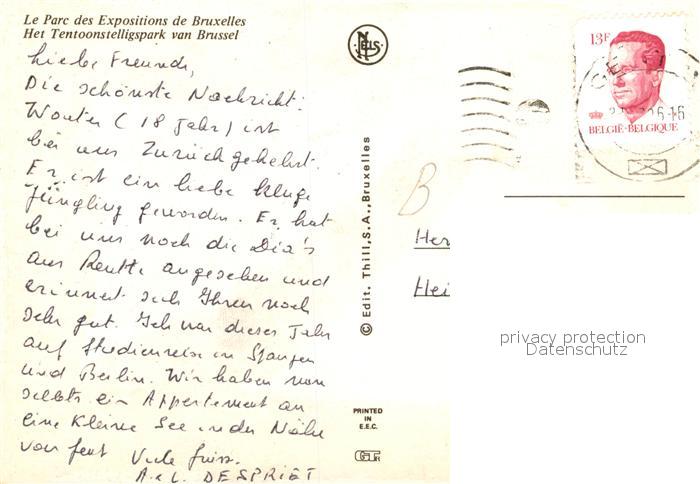 Le Parc des Expositions de Bruxelles
Het Tentoonstelligspark van Brussel
Liebe Freunde,
Die schönste Nachricht:
Wouter (18 Jahr) ist
bei uns Zurück gekehrt.
Er ist ein liebe kluge
Jüngling geworden. Er hat
bei uns noch die Dia's
aus Reutte angesehen und
erinnert sich Ihnen noch
sehr gut. Ich war dieses Jahr
auf Studienreise in Spanien
und Berlin. Wir haben nun
selbts ein Appartement an
eine kleine See in der Nähe
von Gent Viele Grüsse.
A. & L. DESPRIET
NELS
© Edit. Thill, S.A., Bruxelles
PRINTED
IN
E.E.C.
13F
BELGIË-BELGIQUE
B
Her
Hei
privacy protection
Datenschutz